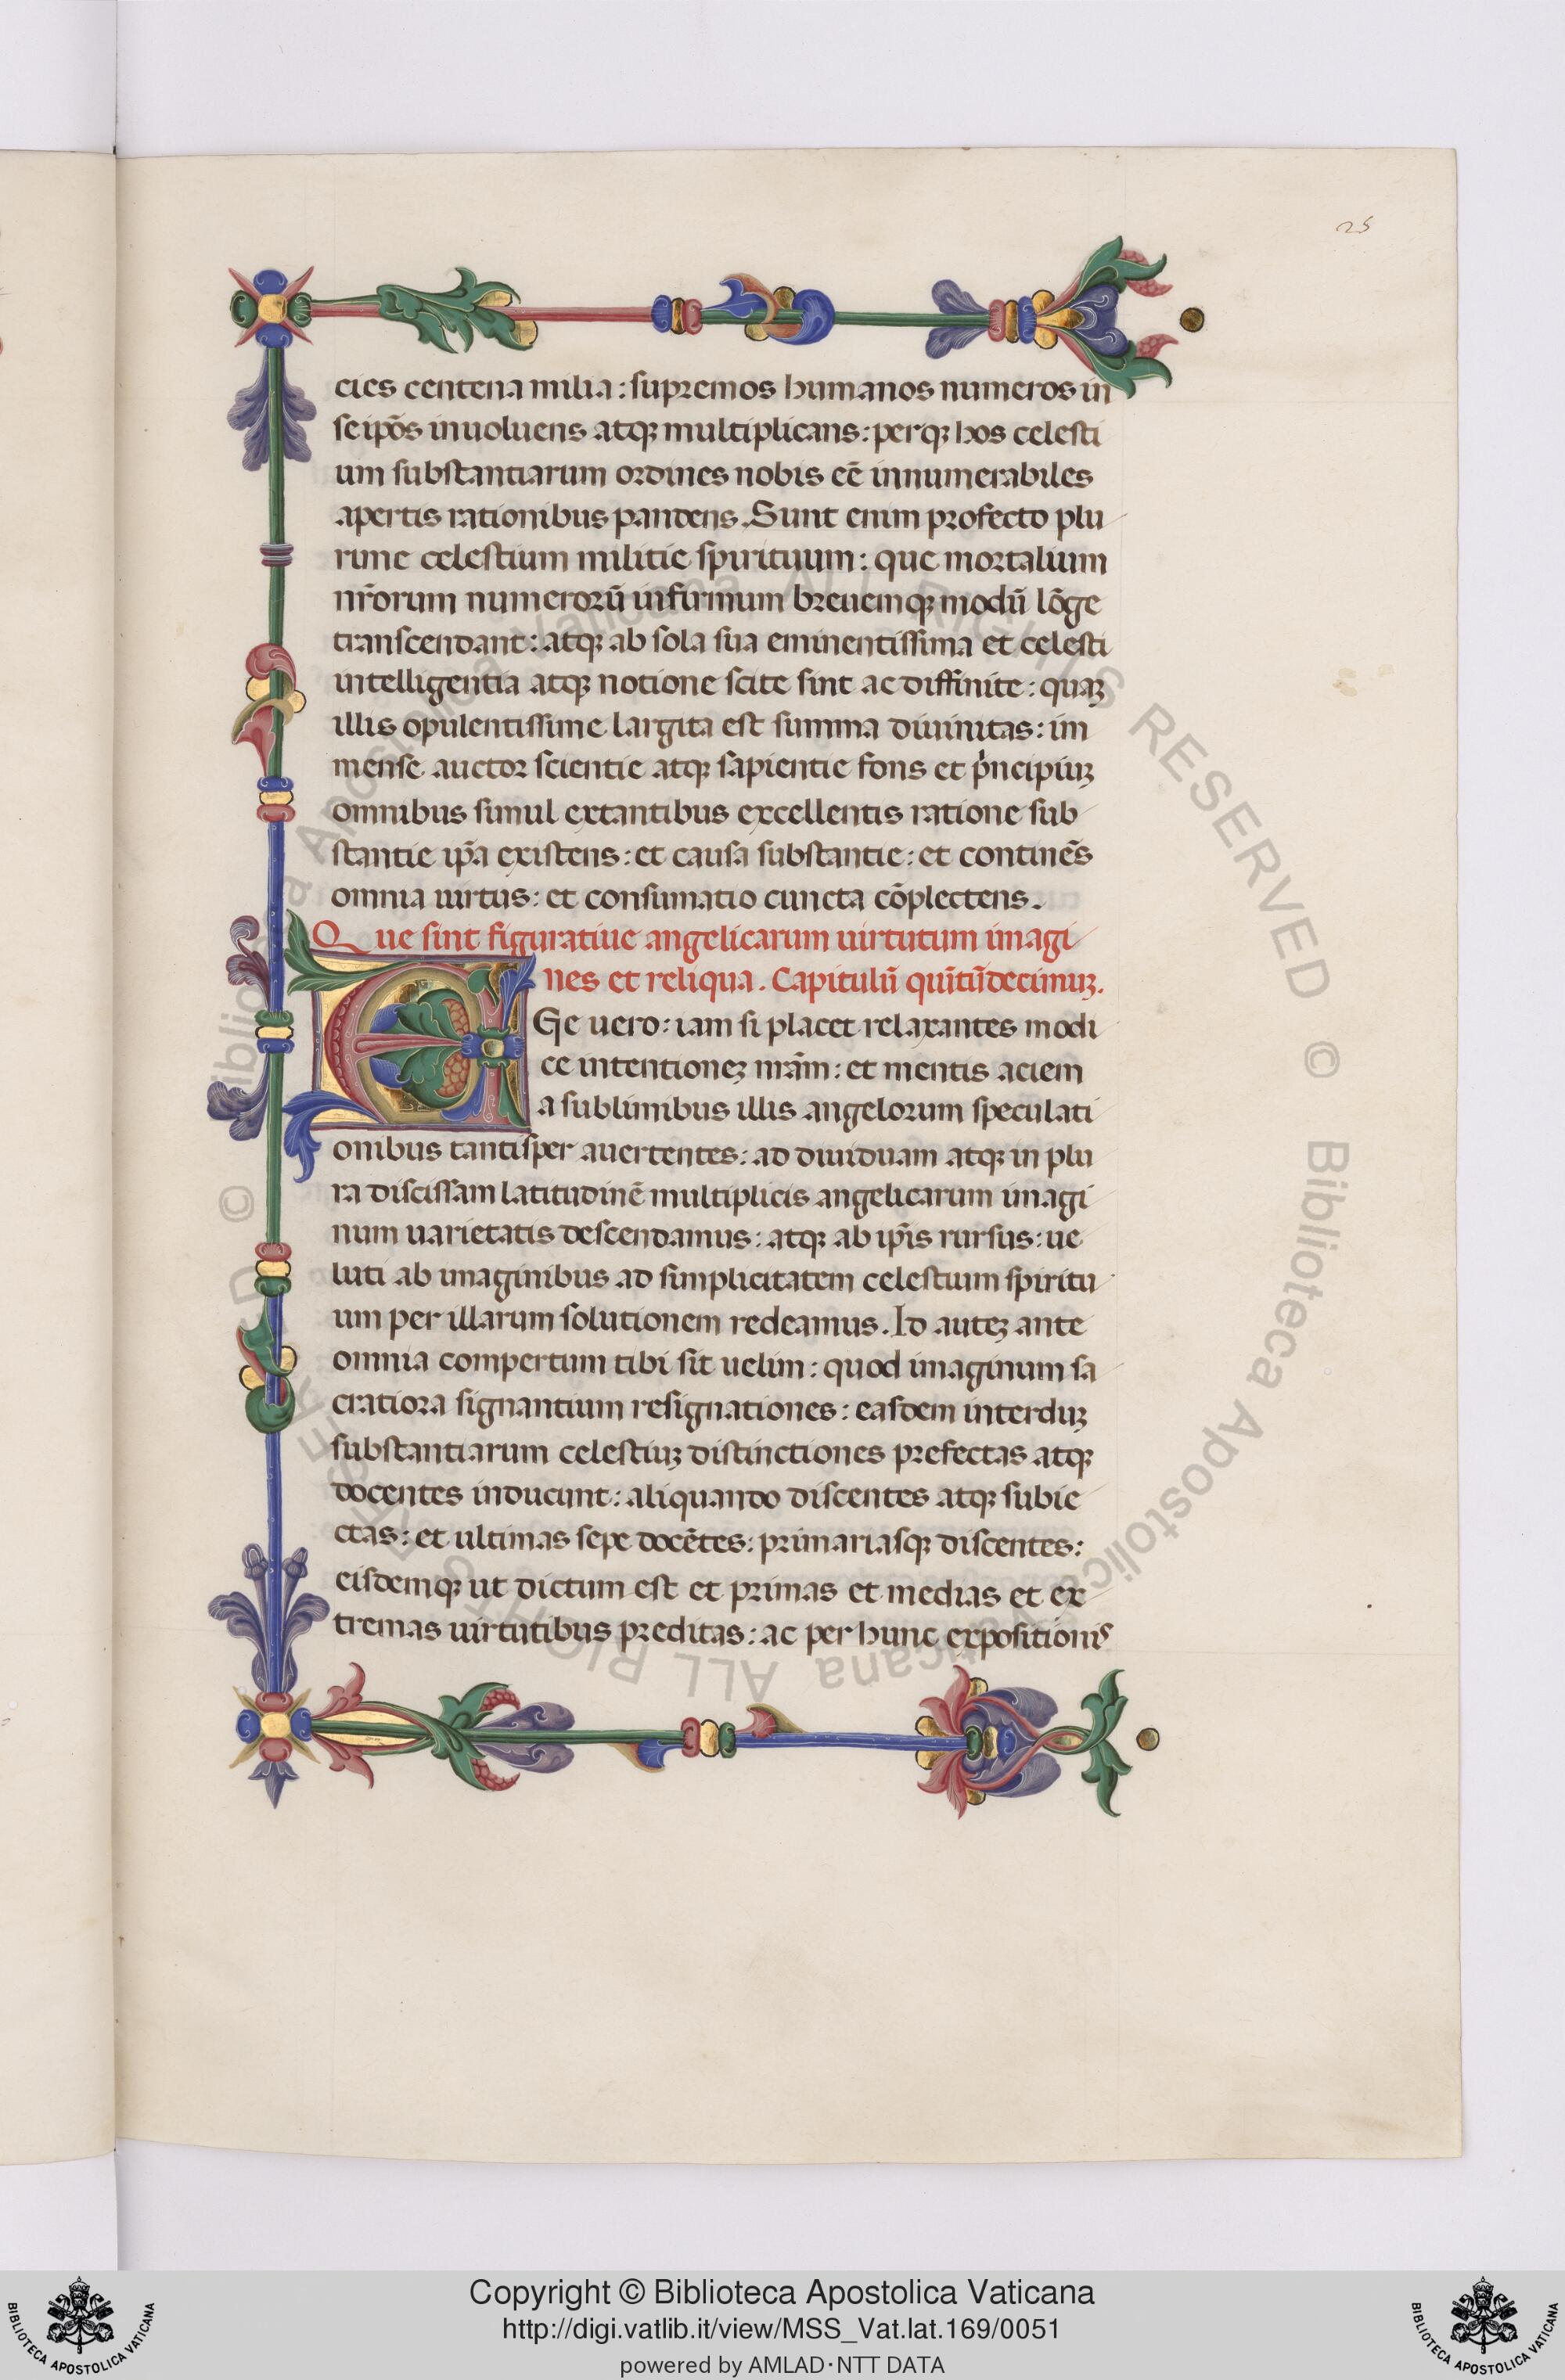 25
cies centena milia: supremos humanos numeros in
se ip̃os inuoluens atqꝫ multiplicans: perqꝫ hos celesti
um substantiarum ordines nobis eẽ innumerabiles
apertis rationibus pandens. Sunt enim profecto plu
rime celestium militie spirituum: que mortalium
nr̃orum numerorũ infirmum breuemqꝫ modũ lõge
transcendant: atqꝫ ab sola sua eminentissima et celesti
intelligentia atqꝫ notione scite sint ac diffinite: quaꝫ
illis opulentissime largita est summa diuinitas: im
mense auctor scientie atqꝫ sapientie fons et pͥncipiuꝫ
omnibus simul extantibus excellentis ratione sub
stantie ip̃a existens: et causa substantie: et continẽs
omnia uirtus: et consumatio cuncta cõplectens.
Que sint figuratiue angelicarum uirtutum imagi
nes et reliqua. Capitulũ quĩtũdecimuꝫ.
EGe uero: iam si placet relaxantes modi
ce intentioneꝫ nr̃am: et mentis aciem
a sublimibus illis angelorum speculati
onibus tantisper auertentes: ad diuiduam atqꝫ in plu
ra discissam latitudinẽ multiplicis angelicarum imagi
num uarietatis descendamus: atqꝫ ab ip̃is rursus: ue
luti ab imaginibus ad simplicitatem celestium spiritu
um per illarum solutionem redeamus. Id auteꝫ ante
omnia compertum tibi sit uelim: quod imaginum sa
cratiora signantium resignationes: easdem interduꝫ
substantiarum celestiuꝫ distinctiones prefectas atqꝫ
docentes inducunt: aliquando discentes atqꝫ subie
ctas: et ultimas sepe docẽtes: primariasqꝫ discentes:
eisdemqꝫ ut dictum est et primas et medias et ex
tremas uirtutibus preditas: ac per hunc expositionis
© Biblioteca Apostolica Vaticana ALL RIGHTS RESERVED
Copyright © Biblioteca Apostolica Vaticana
http://digi.vatlib.it/view/MSS_Vat.lat.169/0051
powered by AMLAD·NTT DATA
BIBLIOTECA APOSTOLICA VATICANA
BIBLIOTECA APOSTOLICA VATICANA